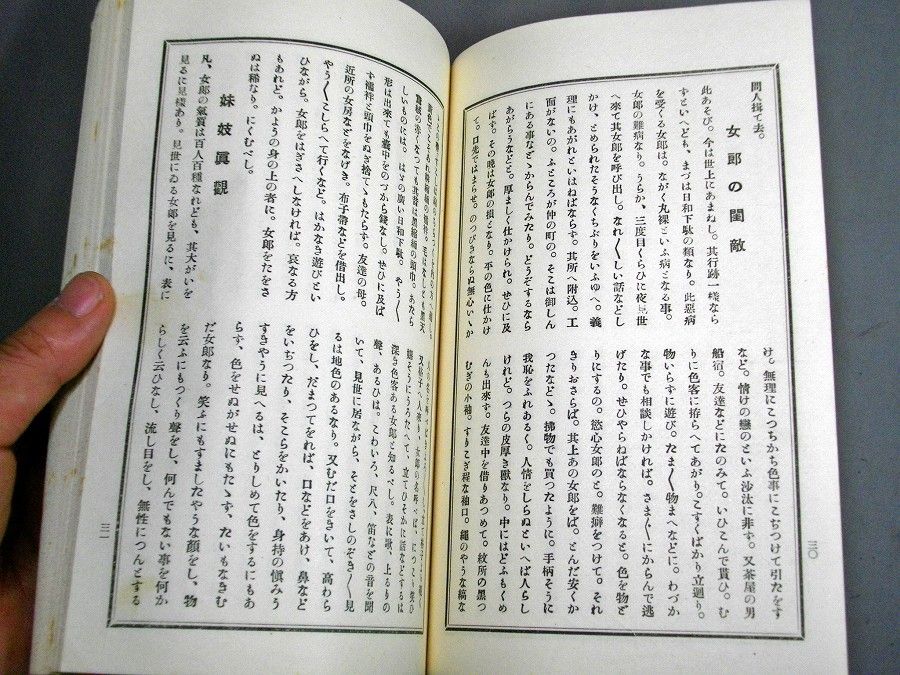 間人揖て去。
女郎の閨敵
此あそび。今は世上にあまねし。其行跡一樣なら
ずといへども、まづは日和下駄の類なり。此惡病
を受くる女郎は。ながく丸裸といふ病となる事。
女郎の難病なり。うらか、三度目くらひに夜見世
へ來て其女郎を呼び出し。なれ〱しい話などし
かけ、とめられたそうなくちぶりをいふゆへ。義
理にもあがれといはねばならず。其所へ附込。工
面がないの。ふところが仲の町の。そこは御しん
にある事などゝからんでみたり。どうぞするなら
あがらうなどと。厚ましく仕かけられ。せひに及
ばす。その晩は女郎の損となり。平の色に仕かけ
て。口先ではまらせ。のつびきならぬ無心いゝか
け。無理にこつちかち色事にこぢつけて引たをす
など。情けの戀のといふ沙汰に非ず。又茶屋の男
船宿。友達などにたのみて。いひこんで貰ひ。む
りに色客に拵らへてあがり。こすくばかり立廻り。
物いらずに遊び。たま〱物まへなどに。わづか
な事でも相談しかければ。さま〱にからんで逃
げたり。せひやらねばならなくなると。色を物ど
りにするの。慾心女郎のと。難癖をつけて。それ
きりおさらば。其上あの女郎をば。とんだ安くか
つたなどゝ。拂物でも買つたように。手柄そうに
我恥をふれあるく。人情をしらぬといへば人らし
けれど。つらの皮厚き獸なり。中にはどふもくめ
んも出來す。友達中を借りあつめて。紋所の黑つ
むぎの小袖。すりこぎ程な袖口。繩のやうな縞な
三〇
しいものには。はゞの廣い日和下駄。やう〱
形は出來ても臺中をのづから錢なし。せひに及ば
す襦袢と頭巾をぬぎ捨てゝもたらす。友達の母。
近所の女房などをなげき。布子帶などを借出し。
やう〱こしらへて行くなど。はかなき遊びとい
ひながら。女郎をはぎさへしなければ。哀なる方
もあれど。かようの身の上の者に。女郎をたをさ
ぬは稀なり。にくむべし。
妹妓眞觀
凡、女郎の氣質は百人百種なれども、其大がいを
見るに見樣あり。見世にゐる女郎を見るに、表に
深き色客ある女郎と知るべし。表に歌、上るりの
聲、あるひは。こわいろ、尺八、笛などの音を聞
いて、見世に居ながら、そとをさしのぞき〱見
るは地色のあるなり。又むだ口をきいて、高わら
ひをし、だまつてをれば、口などをあけ、鼻など
をいぢつたり、そこらをかいたり、身持の愼みう
すきやうに見へるは、とりしめて色をするにもあ
らす、色をせぬがせぬにもたゝす、たいもなきむ
だ女郎なり。笑ふにもすましたやうな顏をし、物
を云ふにもつくり聲をし、何んでもない事を何か
らしく云ひなし、流し目をし、無性につんとする
三一